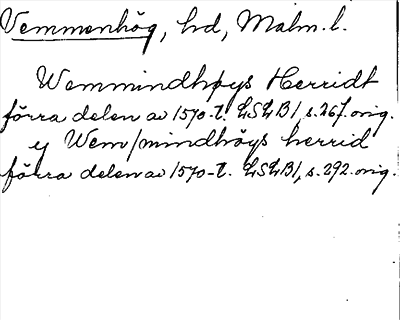 Vemmenhög, hd, Malm. l.
Wemmindhøys Herridt
förra delen av 1570-t. LSLB1, s. 267. orig.
ij Wem/mindhöys herrid
förra delen av 1570-t. LSLB1, s. 292. orig.